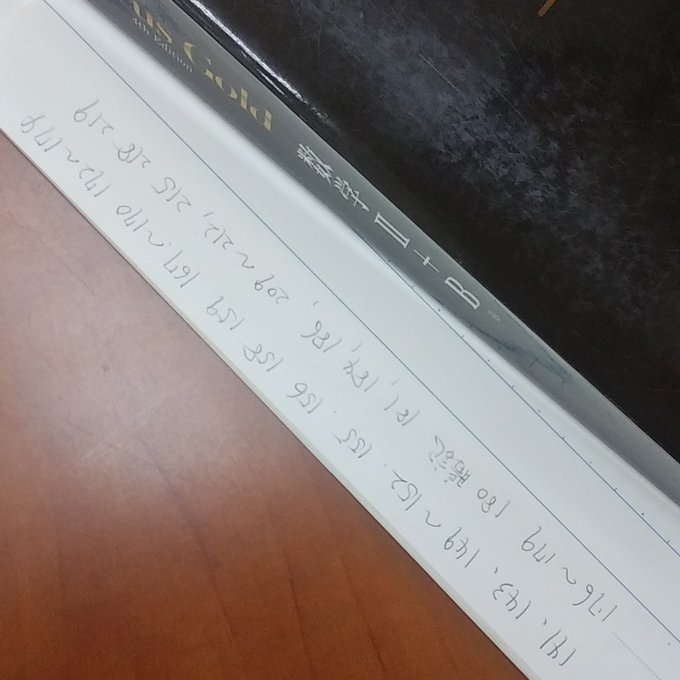 us Gold
4th Edition
数学 II+B
141, 143, 149~152, 155, 156 158 159 167, ~170 172~174
176~179 180 暗記 181, 184, 186, 209~212, 215 218 219